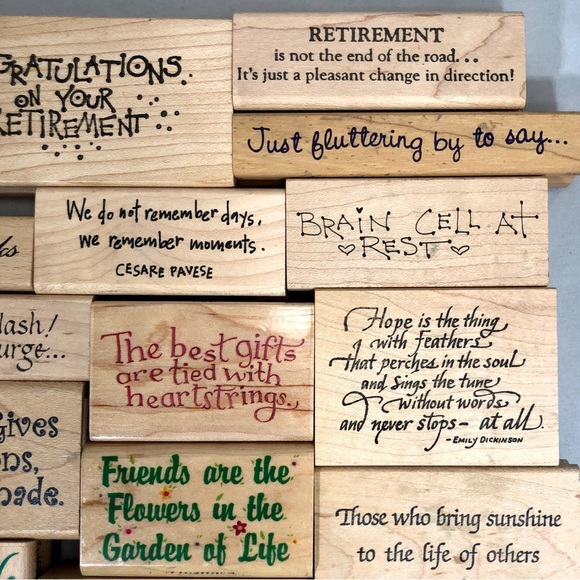 GRATULATIONS
ON YOUR
RETIREMENT
RETIREMENT
is not the end of the road...
It's just a pleasant change in direction!
Just fluttering by to say...
We do not remember days,
we remember moments.
CESARE PAVESE
BRAIN CELL AT
REST
lash!
urge...
The best gifts
are tied with
heartstrings.
Hope is the thing
with feathers
that perches in the soul
and sings the tune
without words
and never stops - at all.
- EMILY DICKINSON
ives
ns,
ade.
Friends are the
Flowers in the
Garden of Life
Those who bring sunshine
to the life of others